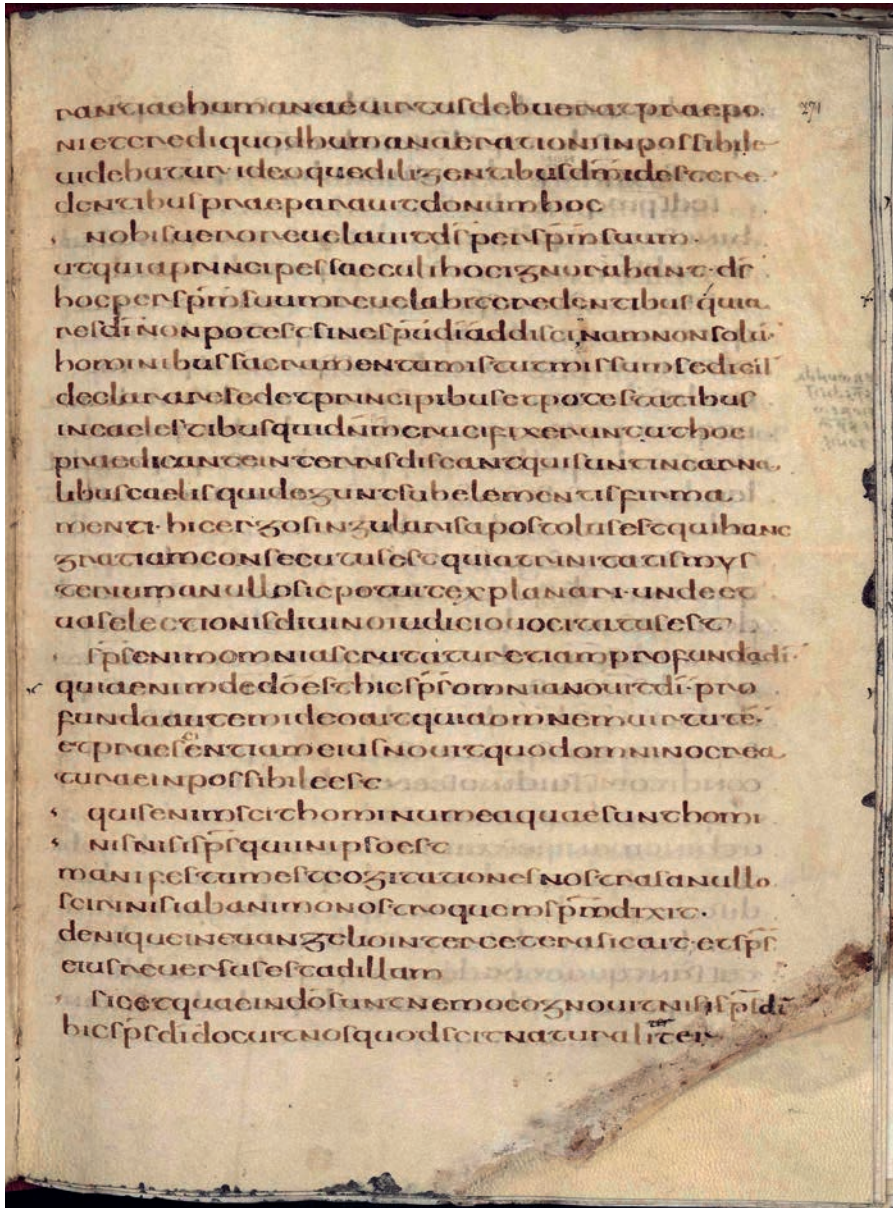 rantiaehumanaeuirtusdebueratpraepo 271
nietcrediquodhumanaerationiinpossibile
uidebatur·ideoquediligentibusdm̄idestcre
dentibuspraeparauitdonumhoc
nobisueroreuelauitds̄persp̄msuum·
utquiaprincipessaeculihocignorabant·ds̄
hocpersp̄msuumreuelabitcredentibusquia
resdī nonpotestsinesp̄udīaddiscinamnonsolū
hominibussacramentumistutmissumsedicil
declararesedetprincipibusetpotestatibus
incaelestibusquidn̄mcrucifixeruntuthoc
praedicanteinterrisdiscantquisuntincarna
libuscaelisquideguntsubelementisfirma
menti·hicergosingularisapostolusestquihanc
gratiamconsecutusestquiatrinitatismys
teriumanullosicpotuitexplanari·undeet
uaselectionisdiuinoiudiciouocitatusest
sp̄senimomniascrutaturetiamprofundadī·
quiaenimdedōesthicsp̄somnianouitdī·pro
fundaautemideoaitquiaomnemuirtutē·
etpraesentiameiusnouitquodomninocrea
turaeinpossibileest
quisenimscithominumeaquaesunthomi
nisnisisp̄squiinipsoest
manifestumestcogitationesnostrasanullo
scirinisiabanimonostroquemsp̄mdixit·
deniqueineuangeliointerceterasicait·etsp̄s
eiusreuersusestadillam
sicetquaeindōsuntnemocognouitnisisp̄sdī
hicsp̄sdīdocuitnosquodscitnaturaliter